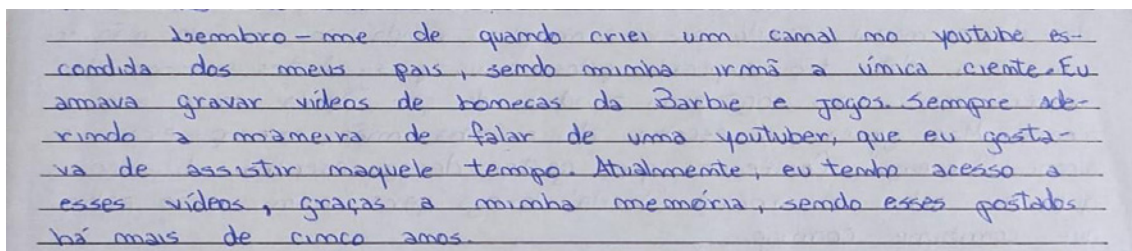 Lembro-me de quando criei um canal no youtube es-
condida dos meus pais, sendo minha irmã a única ciente. Eu
amava gravar vídeos de bonecas da Barbie e jogos. Sempre ade-
rindo a maneira de falar de uma youtuber, que eu gosta-
va de assistir naquele tempo. Atualmente, eu tenho acesso a
esses vídeos, graças a minha memória, sendo esses postados
há mais de cinco anos.